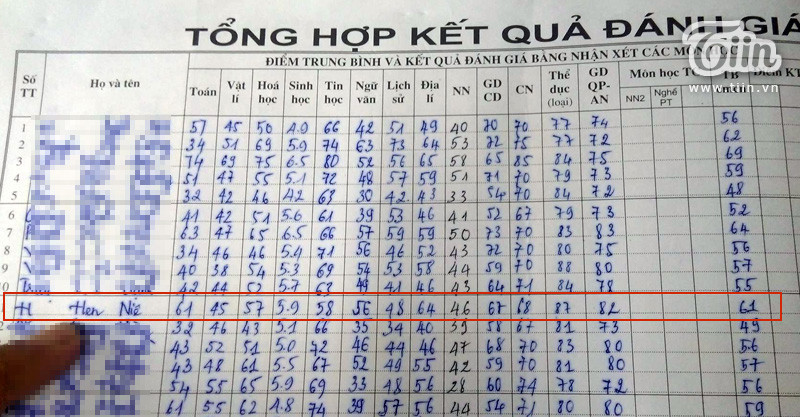 TỔNG HỢP KẾT QUẢ ĐÁNH GIÁ
Tiin
tiin.vn
ĐIỂM TRUNG BÌNH VÀ KẾT QUẢ ĐÁNH GIÁ BẰNG NHẬN XÉT CÁC MÔN HỌC
Số TT Họ và tên Toán Vật lí Hoá học Sinh học Tin học Ngữ văn Lịch sử Địa lí NN GD CD CN Thể dục (loại) GD QP-AN Môn học TC NN2 Nghề PT TB Điểm KT
1 57 45 50 4.9 66 42 51 49 40 70 70 77 74 56
2 34 51 69 5.9 74 63 73 64 53 72 75 77 72 62
3 74 69 75 6.5 80 52 56 65 58 65 85 84 75 69
4 51 47 55 5.1 72 48 57 59 51 71 70 79 73 59
5 32 42 46 4.2 63 30 42 43 33 54 70 84 72 48
6 41 42 51 5.6 61 39 53 46 41 52 67 79 73 52
7 63 47 65 6.5 66 57 59 59 50 73 70 83 83 64
8 34 46 46 5.4 71 56 46 52 43 72 70 80 70 56
9 40 38 54 5.3 69 54 53 58 44 59 70 88 80 57
42 44 52 5.7 63 49 41 46 43 64 71 84 78 55
H Hen Niê 61 45 57 5.9 58 56 48 64 46 67 68 87 82 61
32 46 43 5.1 66 35 34 40 39 58 67 81 73 49
43 52 51 5.0 72 46 44 46 47 68 70 83 80 56
43 48 61 5.5 67 52 49 55 42 59 70 81 80 57
54 55 65 5.9 69 33 48 56 28 60 74 78 72 56
61 55 62 4.8 74 39 57 56 44 54 71 80 80 59